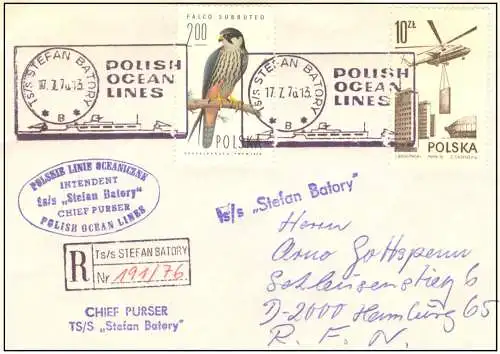 FALCO SUBBUTEO
200
POLSKA
10 ZŁ
POLSKA
TS/S STEFAN BATORY
17.7.76.13.
* B *
POLISH
OCEAN
LINES
TS/S STEFAN BATORY
17.7.76.13.
* B *
POLISH
OCEAN
LINES
POLSKIE LINIE OCEANICZNE
INTENDENT
ts/s „Stefan Batory”
CHIEF PURSER
POLISH OCEAN LINES
ts/s „Stefan Batory”
R
Ts/s STEFAN BATORY
Nr 191/76
CHIEF PURSER
TS/S „Stefan Batory”
Herrn
Arno Gottspenn
Schleusenstieg 6
D-2000 Hamburg 65
R. F. N.